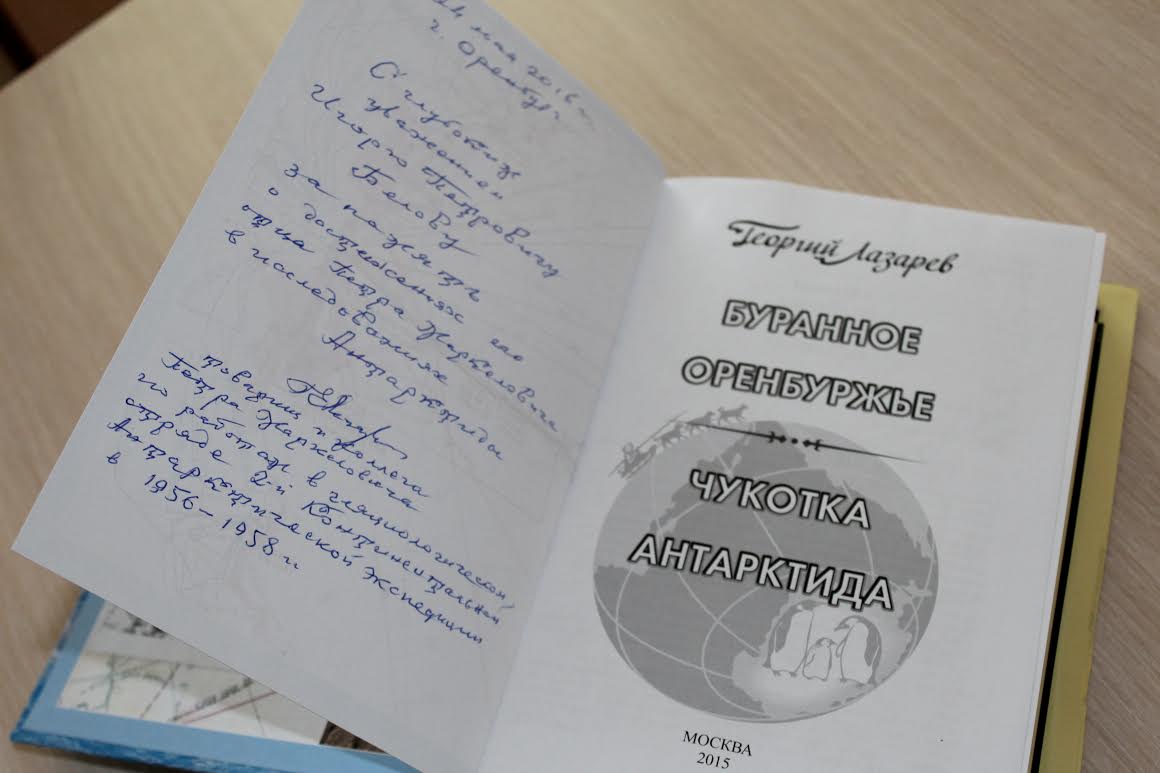 мая 2016 г.
г. Оренбург
С глубоким
уважением
Игорю Петровичу
Белову
за память
о достижениях его
отца Петра Харжеловича
в исследованиях
Антарктиды
товарищ и коллега
Петра Харжеловича
по работам в гляциологическом
отряде 2-й Континентальной
Антарктической экспедиции
в 1956–1958 гг
Георгий Лазарев
БУРАННОЕ
ОРЕНБУРЖЬЕ
ЧУКОТКА
АНТАРКТИДА
МОСКВА
2015